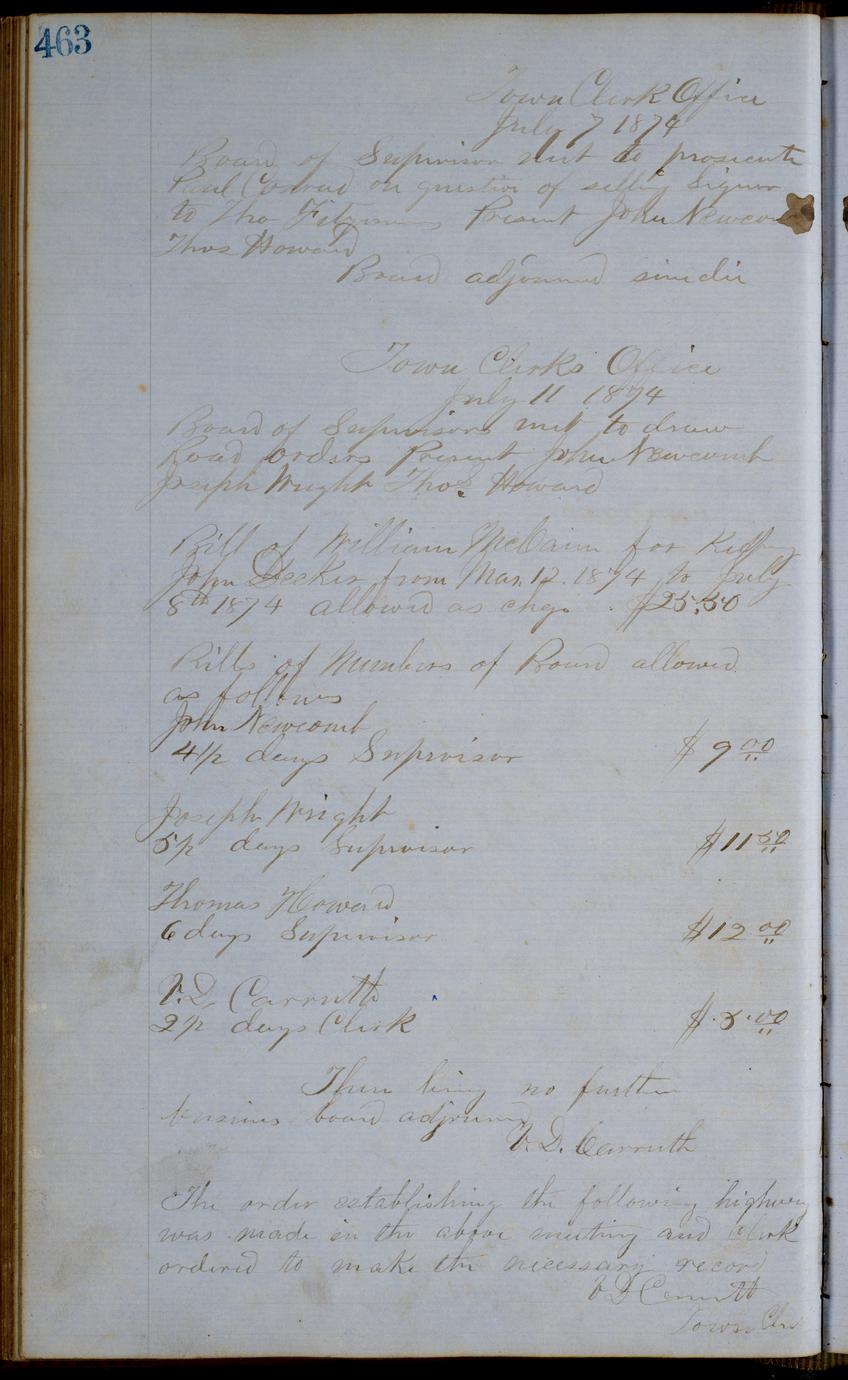 463
Town Clerk Office
July 7 1874
Board of Supervisor met to prosecute
Paul Conrad on question of selling Liquor
to Tho Present John Newcomb
Thos Howard
Board adjourned sinedie
Town Clerks Office
July 11 1874
Board of Supervisors met to draw
Road orders Present John Newcomb
Joseph Wright Thos Howard
Bill of William McCann for
John Decker from Mar. 12. 1874 to July
8th 1874 allowed as chgs. $25.50
Bills of Members of Board allowed
as follows
John Newcomb
4 1/2 days Supvisor $ 9 00
Joseph Wright
5 1/2 days Supvisor $11 50
Thomas Howard
6 days Supvisor $12 00
V. D. Carruth
2 1/2 days Clerk $ 5.00
There being no further
business board adjourned
V. D. Carruth
The order establishing the following highway
was made in the above meeting and Clerk
ordered to make the necessary record
V D Carruth
Town Clerk